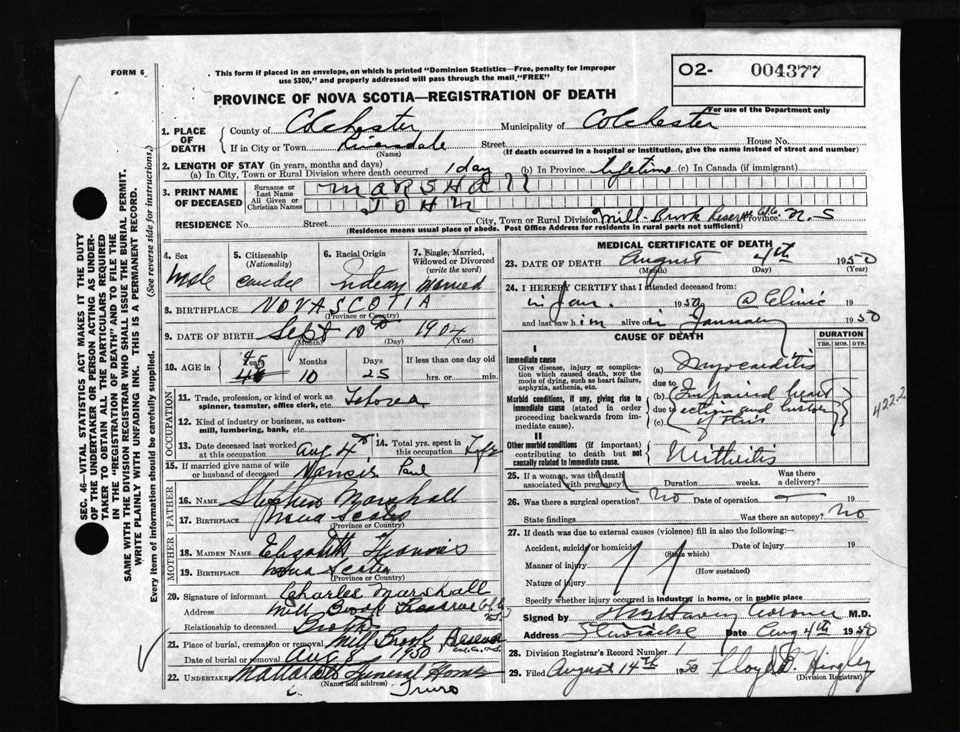 FORM 6
This form if placed in an envelope, on which is printed "Dominion Statistics—Free, penalty for improper
use $300," and properly addressed will pass through the mail "FREE"
O2- 004377
For use of the Department only
PROVINCE OF NOVA SCOTIA—REGISTRATION OF DEATH
1. PLACE OF DEATH
County of Colchester Municipality of Colchester
If in City or Town Riversdale Street House No.
(Name) (If death occurred in a hospital or institution, give the name instead of street and number)
2. LENGTH OF STAY (in years, months and days)
(a) In City, Town or Rural Division where death occurred 1 day (b) In Province lifetime (c) In Canada (if immigrant)
3. PRINT NAME OF DECEASED
Surname or Last Name MARSHAll
All Given or Christian Names JOHN
RESIDENCE No. Street City, Town or Rural Division Mill-Brook Reserve Col. Co. Province N.S
(Residence means usual place of abode. Post Office Address for residents in rural parts not sufficient)
4. Sex Male
5. Citizenship (Nationality)
6. Racial Origin
7. Single, Married, Widowed or Divorced (write the word) Married
8. BIRTHPLACE NOVA SCOTIA
(Province or Country)
9. DATE OF BIRTH Sept 10th 1904
(Month) (Day) (Year)
10. AGE in Years 45 Months 10 Days 25 If less than one day old hrs. or min.
OCCUPATION
11. Trade, profession, or kind of work as
spinner, teamster, office clerk, etc.
12. Kind of industry or business, as cotton-
mill, lumbering, bank, etc.
13. Date deceased last worked at this occupation Aug 4th
14. Total yrs. spent in this occupation Life
15. If married give name of wife or husband of deceased Paul
FATHER
16. NAME Stephen Marshall
17. BIRTHPLACE Nova Scotia
(Province or Country)
MOTHER
18. MAIDEN NAME Elizabeth
19. BIRTHPLACE Nova Scotia
(Province or Country)
20. Signature of informant Charles Marshall
Address Mill Brook Reserve Col. Co. N.S.
Relationship to deceased Brother
21. Place of burial, cremation or removal Mill Brook Reserve
Date of burial or removal Aug 1950
22. UNDERTAKER Funeral Home
(Name and address) Truro
MEDICAL CERTIFICATE OF DEATH
23. DATE OF DEATH August 4th 1950
(Month) (Day) (Year)
24. I HEREBY CERTIFY that I attended deceased from:
in Jan. 1950 @ Clinic 19
and last saw him alive on in January 1950
CAUSE OF DEATH
DURATION
YRS. MOS. DYS.
I
Immediate cause
Give disease, injury or complica-
tion which caused death, not the
mode of dying, such as heart failure,
asphyxia, asthenia, etc.
(a) Myocarditis
due to
Morbid conditions, if any, giving rise to
immediate cause (stated in order
proceeding backwards from im-
mediate cause).
(b) Impaired heart
due to action and history
(c) of
422.2
II
Other morbid conditions (if important)
contributing to death but not
causally related to immediate cause.
25. If a woman, was the death associated with pregnancy? Duration weeks. Was there a delivery?
26. Was there a surgical operation? no Date of operation 19
State findings Was there an autopsy? no
27. If death was due to external causes (violence) fill in also the following:
Accident, suicide or homicide (State which) Date of injury 19
Manner of injury (How sustained)
Nature of injury
Specify whether injury occurred in industry, in home, or in public place
Signed by Coroner M.D.
Address Stewiacke Date Aug 4th 1950
28. Division Registrar's Record Number 1
29. Filed August 14th 1950 Lloyd D. Hingley
(Division Registrar)
SEC. 46—VITAL STATISTICS ACT MAKES IT THE DUTY
OF THE UNDERTAKER OR PERSON ACTING AS UNDER-
TAKER TO OBTAIN ALL THE PARTICULARS REQUIRED
IN THE "REGISTRATION OF DEATH" AND TO FILE THE
SAME WITH THE DIVISION REGISTRAR WHO SHALL ISSUE THE BURIAL PERMIT.
WRITE PLAINLY WITH UNFADING INK. THIS IS A PERMANENT RECORD.
Every item of information should be carefully supplied. (See reverse side for instructions.)